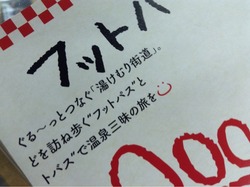 フットパ
ぐる〜っとつなぐ「湯けむり街道」。
どを訪ね歩く"フットパス"と
トパス"で温泉三昧の旅を
00